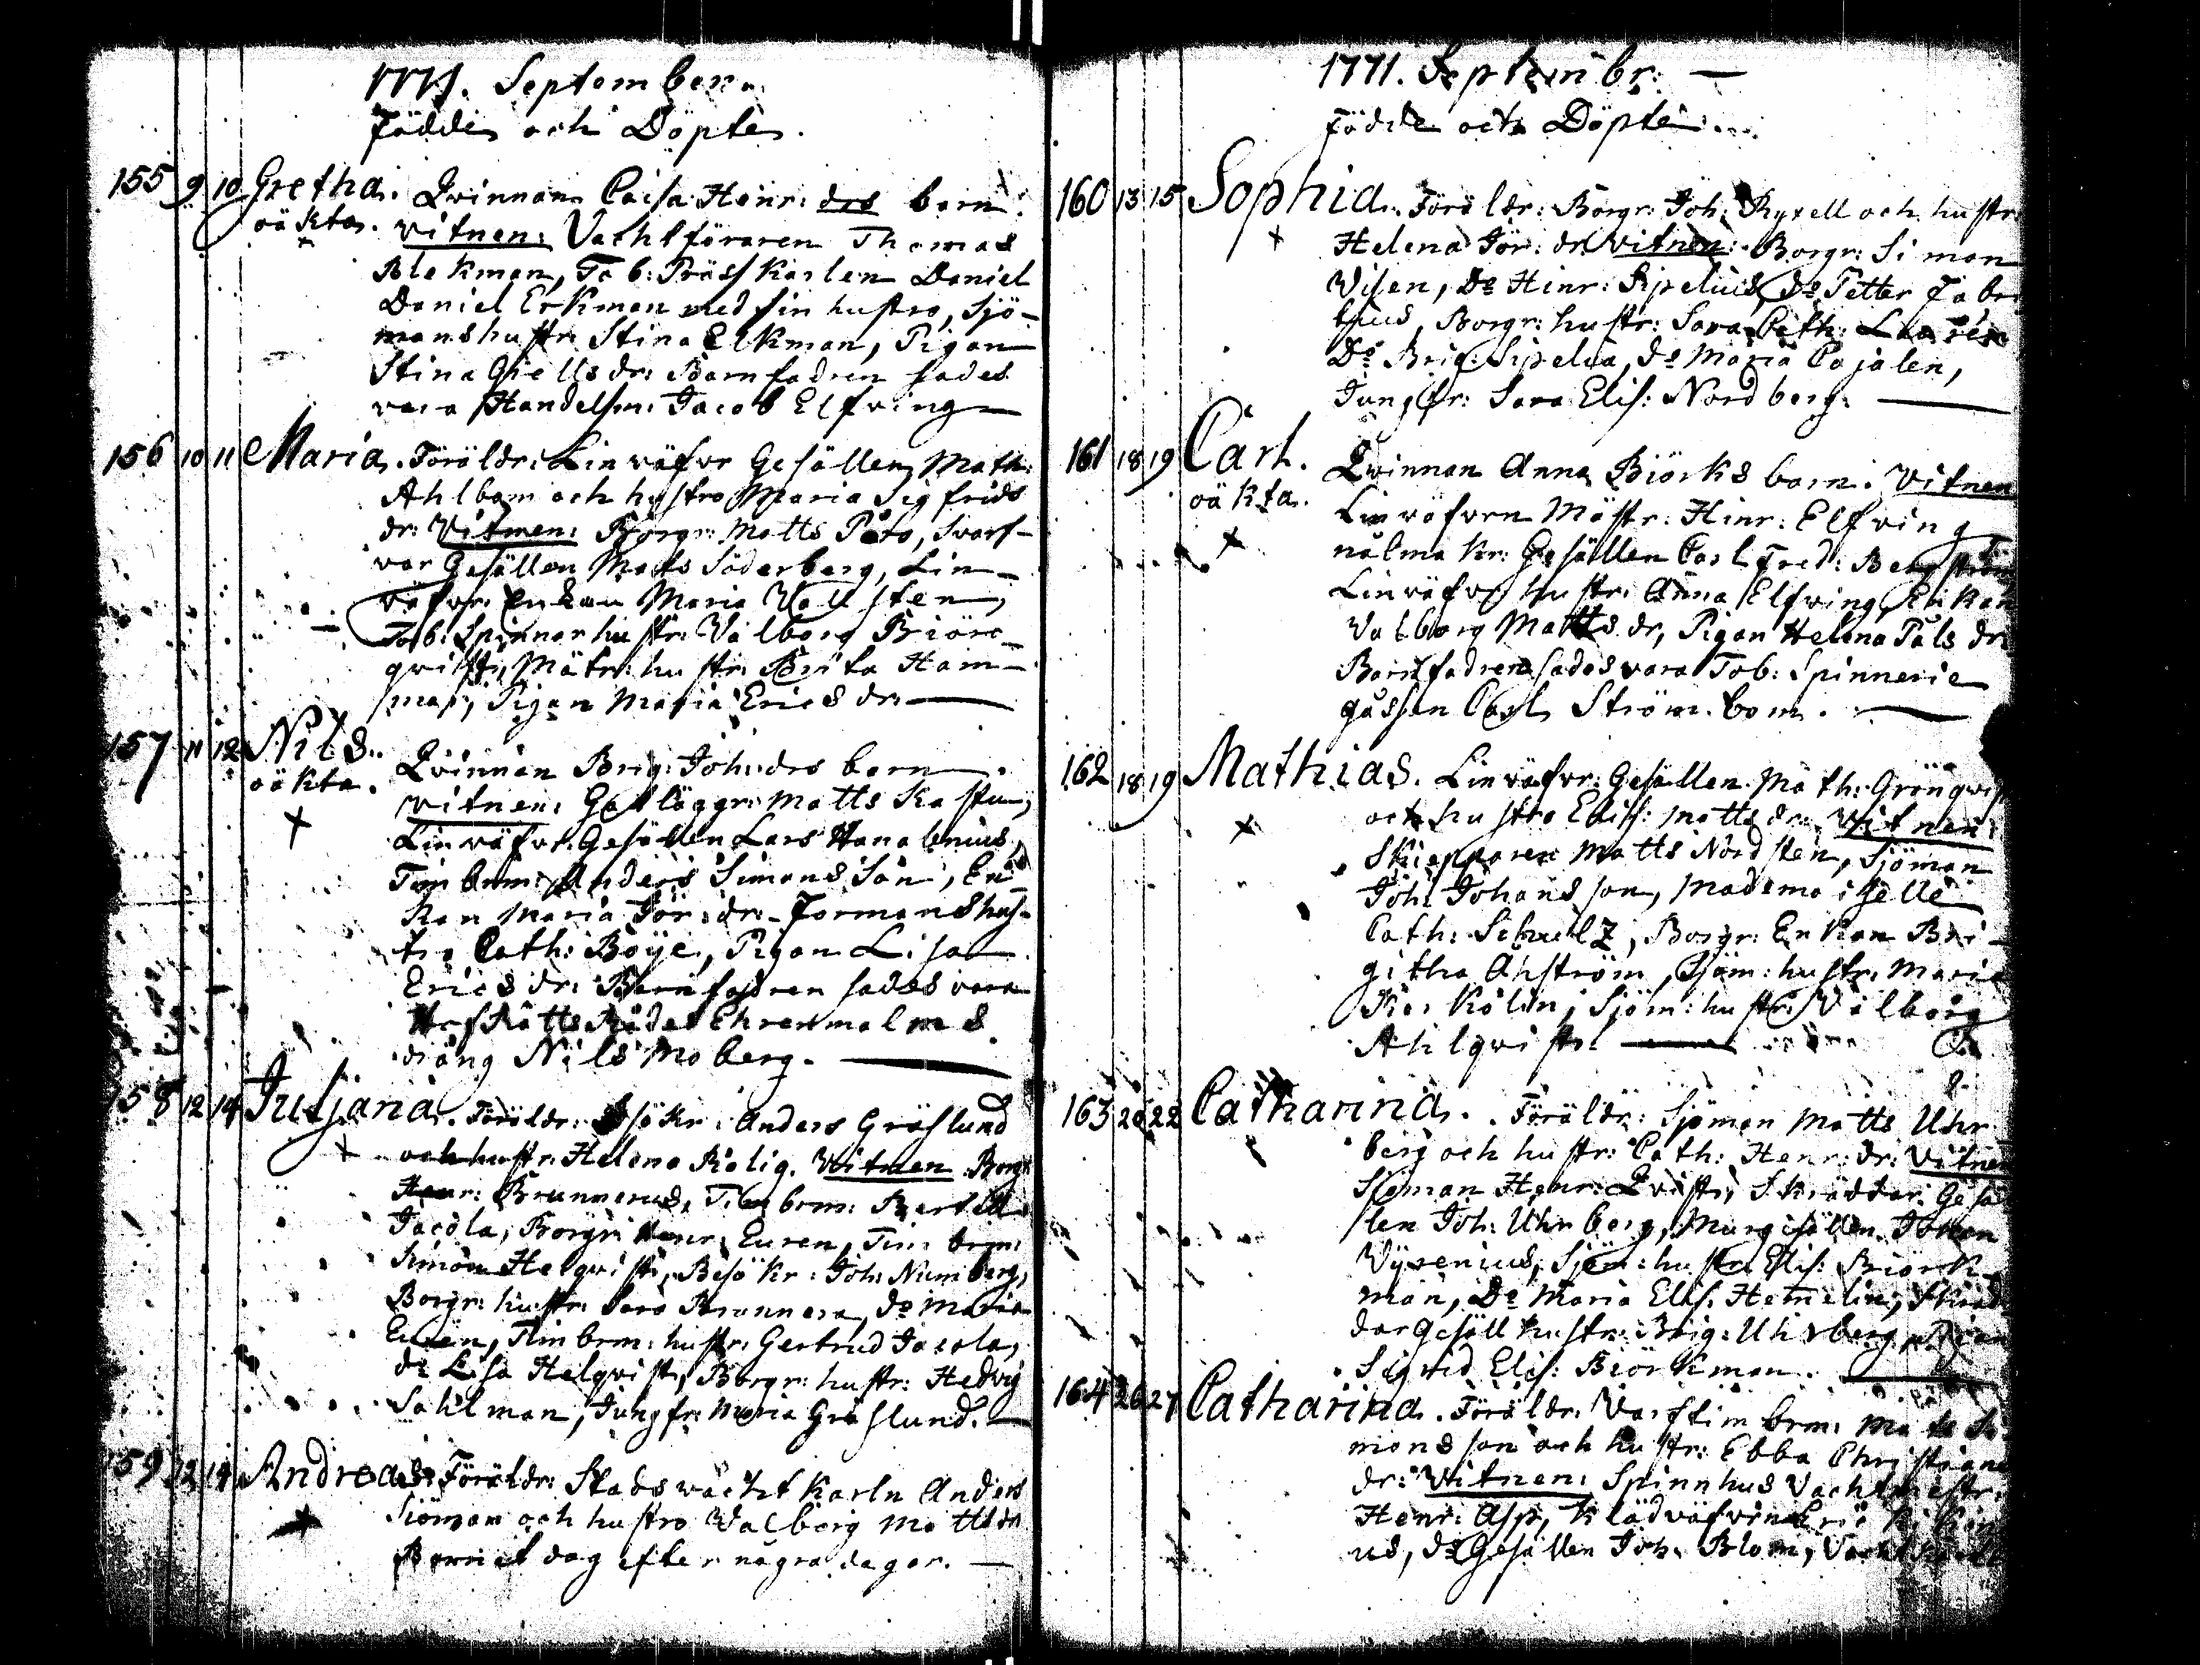 1771. September.
Födde och Döpte.
155 9 10 Gretha. Qvinnan Caisa Henr: drs barn.
oäkta. vitnen: Vachtföraren Thomas
Blekman, Tob: Präss Karlen Daniel
Daniel Ekman med sin hustro, Sjö-
manshustr: Stina Elkman, Pigan
Stina Giells dr: Barnfadren sades
vara Handelsm: Jacob Elfving
156 10 11 Maria. Föräldr: Linväfvr Gesällen Math:
Ahlbom och hustro Maria Sigfrids
dr: Vitnen: Borgr: Matts Påto, Svarf-
var Gesällen Mats Söderberg, Lin-
väfvr: Enkan Maria Vallsten,
Tob: Spinnar hustr: Valborg Biörc
qvist, Mätr: hustr: Brita Ham-
mar, Pigan Maria Erics dr:
157 11 12 Nils. Qvinnan Brig: Joh: drs barn.
oäkta. vitnen: Gatläggr: Matts Kastun,
Linväfvr: Gesällen Lars Hanalenius,
Timbrm: Anders Simons Son, En-
kan Maria Jör: dr: Formans hus-
tro Cath: Böije, Pigan Lisa
Erics dr: Barnfadren sades vara
HofRätts Rådet Ehrenmalms
dräng Nils Moberg.
158 12 14 Juljana. Föräldr: Besökr: Anders Gräslund
och hustr: Helena Rolig. Vitnen: Borgr:
Henr: Brunnerus, Timbrm: Bertill
Jacola, Borgr: Henr: Euren, Timbrm:
Simon Helqvist, Besökr: Joh: Numberg,
Borgr: hustr: Sara Brunnera, Do Maria
Euren, Timbrm: hustr: Gertrud Jacola,
do Lisa Helqvist, Borgr: hustr: Hedvig
Sahlman, Jungfr: Maria Gräslund.
159 12 14 Andreas. Föräldr: Stads wacht Karln Anders
Siöman och hustro Valborg Matts dr
Barnet dog efter några dagar.
1771. Septembr:
Födde och Döpte.
160 13 15 Sophia. Föräldr: Borgr: Joh: Ryxell och hustr:
Helena Jör: dr: vitnen: Borgr: Simon
Wisen, Do Hinr: Sipelius, Do Petter Fabri
tius, Borgr: hustr: Sara Cath:
Do Brig: Sipelia, do Maria Cajalen,
Jungfr: Sara Elis: Nordberg.
161 18 19 Carl. Qvinnan Anna Biörks barn. Vitnen
oäkta. Linväfvrn Mästr: Hinr: Elfving
nålmakr: Gesällen Carl Fred: Bergström
Linväfvr hustr: Anna Elfving, Enkan
Valborg Matts dr, Pigan Helena Påls dr:
Barnfadren sades vara Tob: Spinnerie
gåssen Carl Strömbom.
162 18 19 Mathias. Linväfvr: Gesällen Math: Grönqvist
och hustro Elis: Matts dr: Vitnen:
Skiepparen Matts Nordsten, Sjöman
Joh: Johansson, Mademoiselle
Cath: Schultz, Borgr: Enkan Bri-
githa Ahström, Sjöm: hustr: Maria
Kolin, Sjöm: hustr: Valborg
Ahlqvist.
163 20 22 Catharina. Föräldr: Sjöman Matts Uhr
berg och hustr: Cath: Henr: dr: Vitnen
Siöman Henr: Qvist, Skräddar: Gesäl
len Joh: Uhrberg, Murgesällen Johan
Vyrenius, Sjöm: hustr: Elis: Biörk
man, Do Maria Elis: Hemelin, Skräd
dargesäll hustr: Brig: Uhrberg, Pigan
Sigrid Elis: Biörkman.
164 26 27 Catharina. Föräldr: Varftimbrm: Mats Si
monsson och hustr: Ebba Christians
dr: Vitnen: Spinnhus Vachtmestr:
Henr: Asp, Klädväfvrn Eric
us, do Gesällen Joh: Blom,